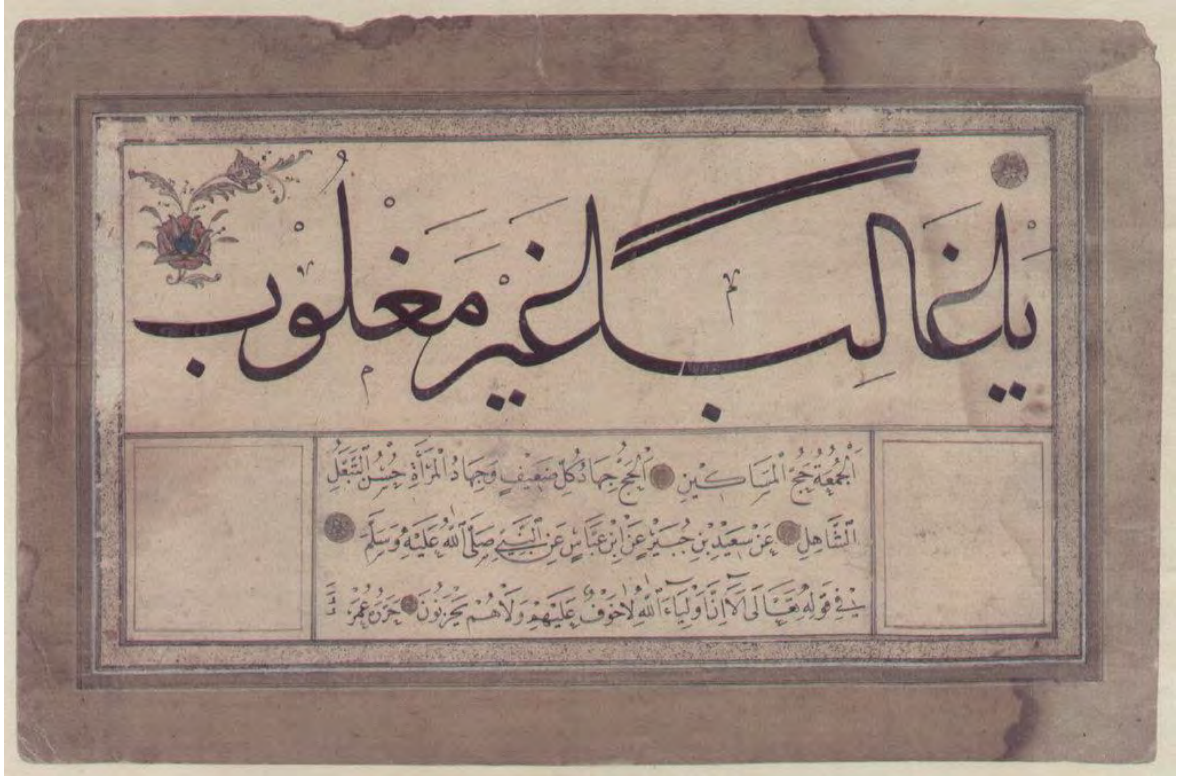 يلغا لبگلغير مغلوب
اَلْجُمُعَةُ حَجُّ الْمَسَاكِينِ اَلْحَجُّ جِهَادُ كُلِّ ضَعِيفٍ وَجِهَادُ الْمَرْأَةِ حُسْنُ التَّبَعُّلِ
اَلشَّاهِلِ عَنْ سَعِيْدِ بْنِ جُبَيْرٍ عَنْ ابْنِ عَبَّاسٍ عَنِ النَّبِيِّ صَلَّى اللّٰهُ عَلَيْهِ وَسَلَّمَ
فِي قَوْلِهِ تَعَالَى أَلَا اِنَّ أَوْلِيَاءَ اللّٰهِ لَا خَوْفٌ عَلَيْهِمْ وَلَا هُمْ يَحْزَنُونَ